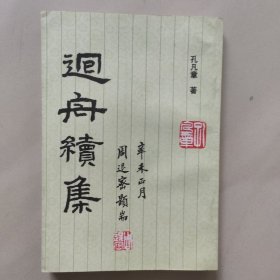 孔凡章 著
迴舟續集
辛未正月
周退密題耑